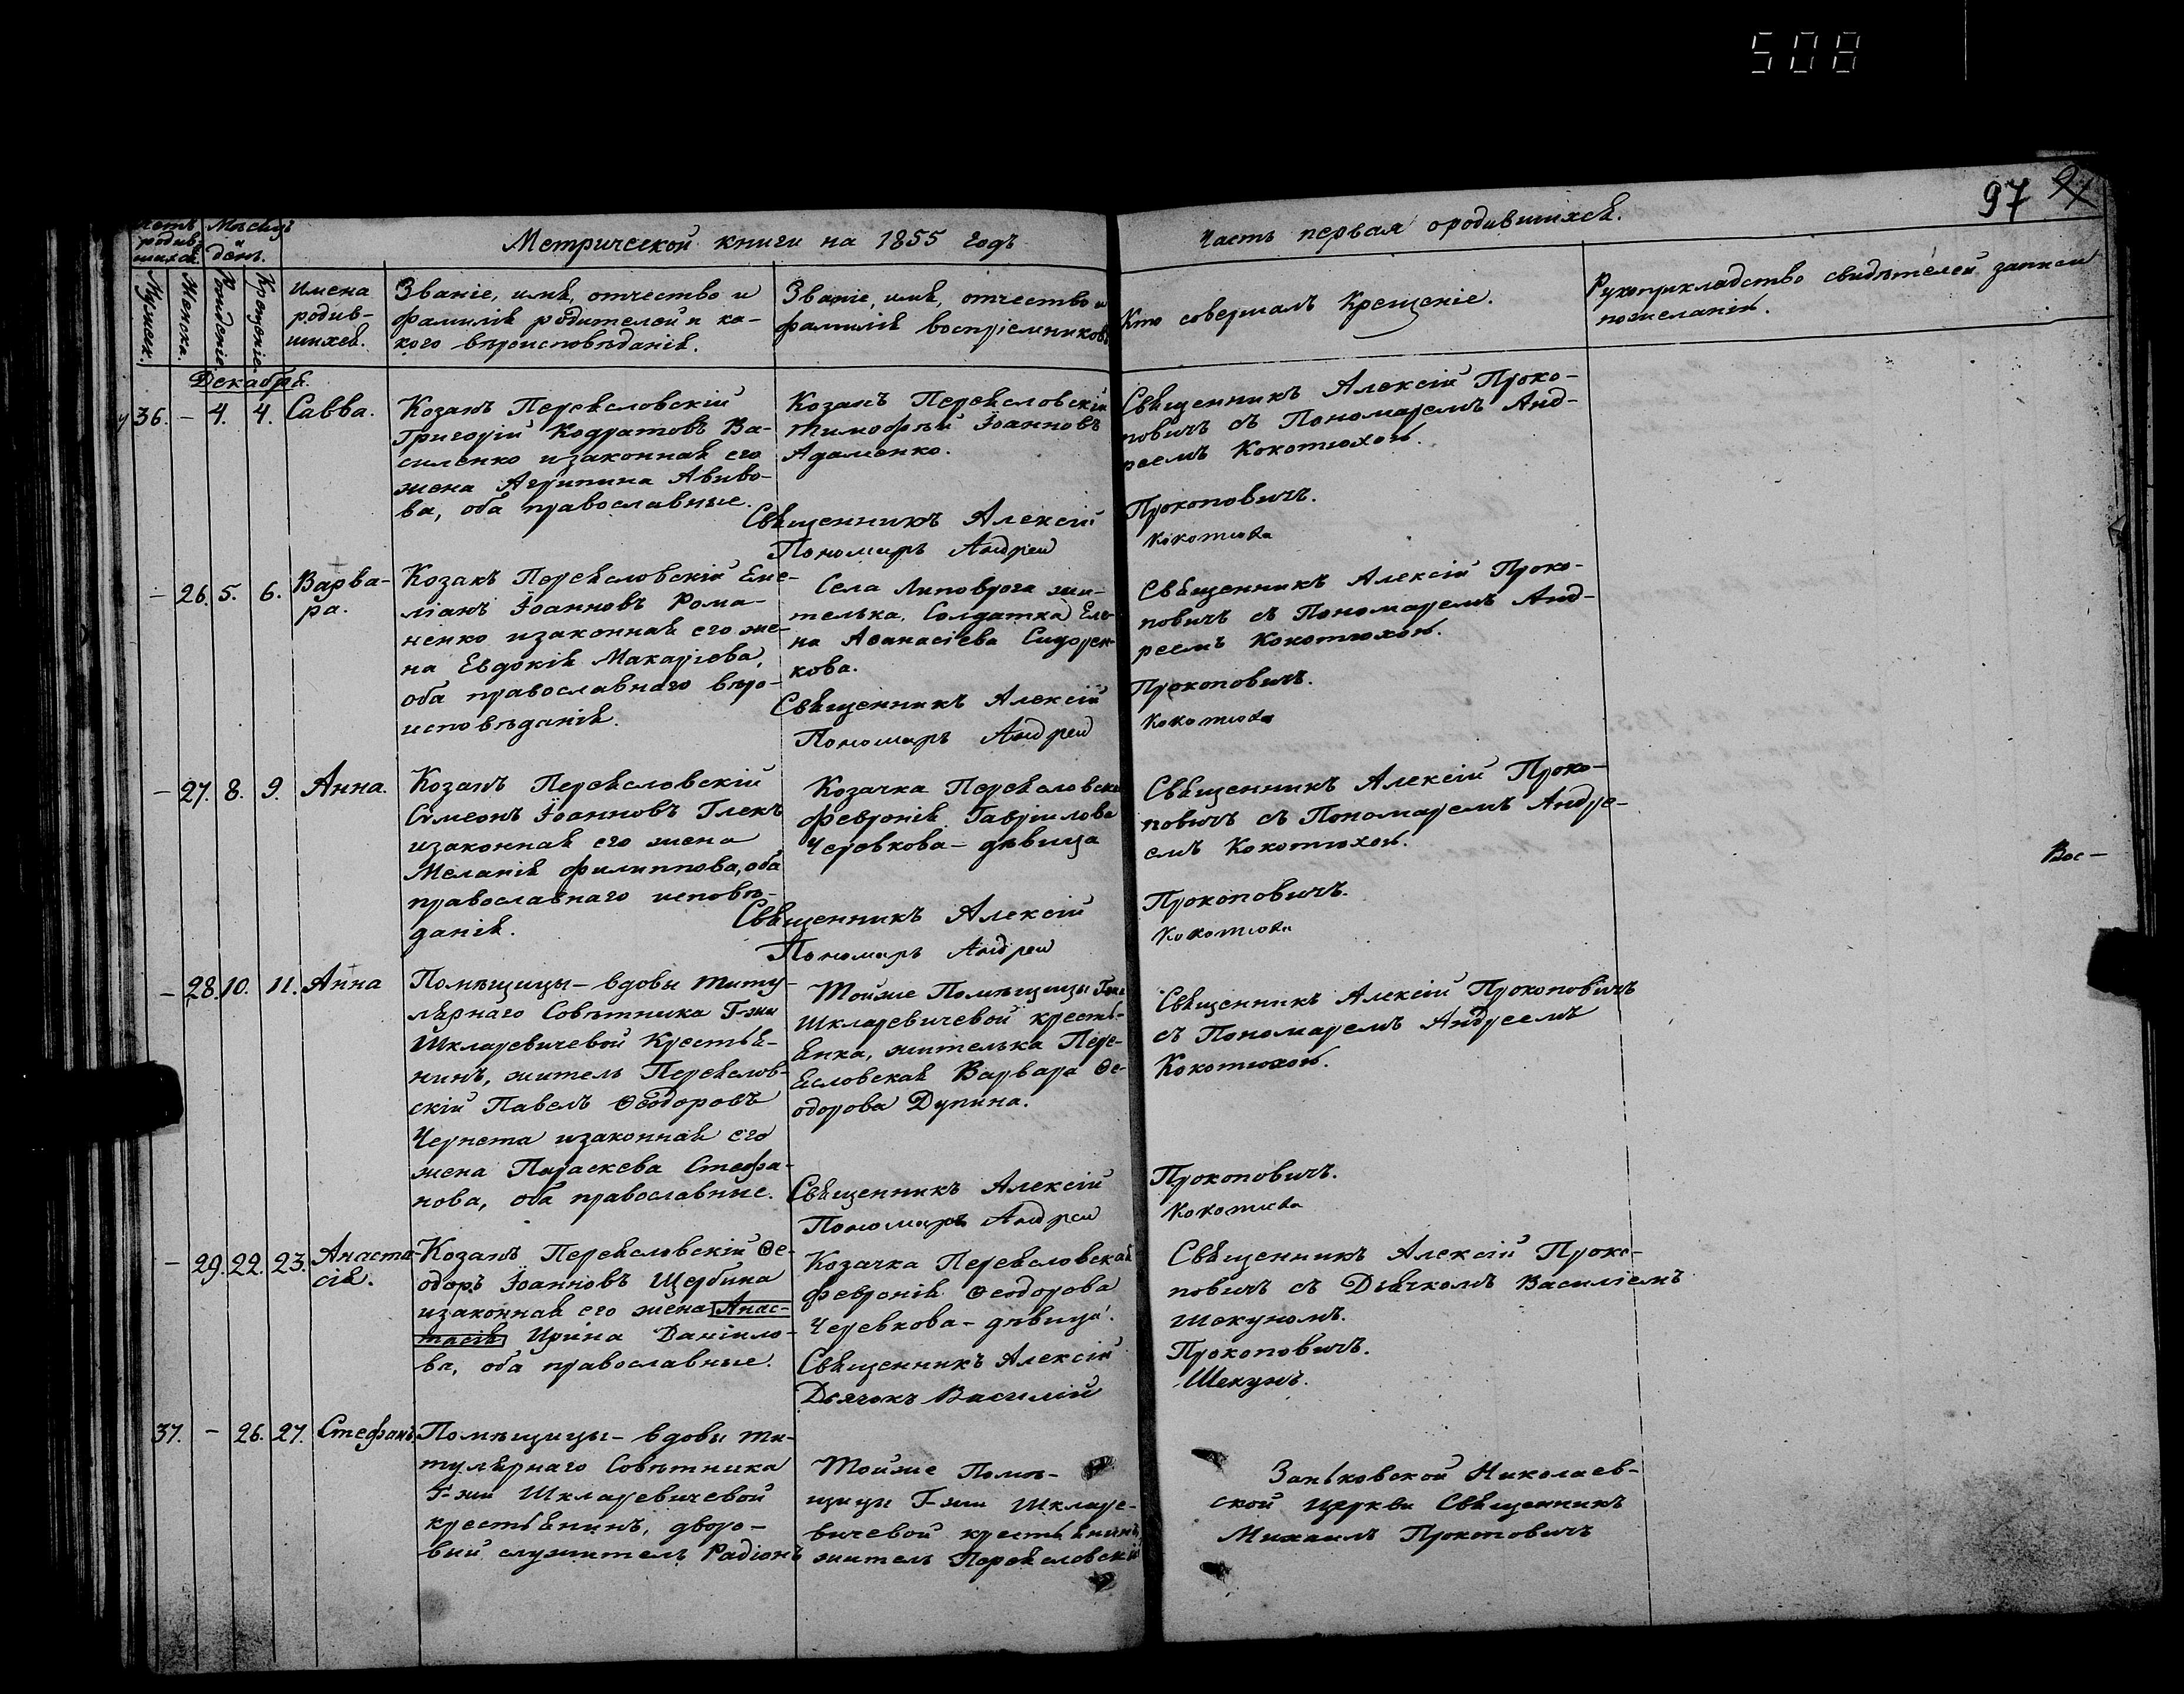 508
97
Метрической книги на 1855 годъ
Часть первая о родившихся.
Счетъ родив-шихся.
Мѣсяцъ и день.
Мужеск.
Женска.
Рожденіе.
Крещеніе.
Имена
родив-
шихся.
Званіе, имя, отчество и
фамилія родителей и ка-
кого вѣроисповѣданія.
Званіе, имя, отчество и
фамилія воспріемниковъ
Кто совершалъ Крещеніе.
Рукоприкладство свидѣтелей записи
по желанію.
Декабря.
36. – 4. 4. Савва.
Козакъ Переясловскій
Григорій Кодратовъ Ва-
силенко и законная его
жена Агрипина Авиво-
ва, оба православные.
Козакъ Переясловскій
Тимофѣй Іоанновъ
Адаменко.
Священникъ Алексій Проко-
повичъ съ Пономаремъ Анд-
реемъ Кокотюхою.
Священникъ Алексій Прокоповичъ.
Пономаръ Андрей Кокотюха
– 26. 5. 6. Варва-
ра.
Козакъ Переясловскій Еме-
ліанъ Іоанновъ Рома-
ненко и законная его же-
на Евдокія Макаріева,
оба православнаго вѣро-
исповѣданія.
Села Липоврога жи-
телька, Солдатка Еле-
на Аѳанасіева Сидорен-
кова.
Священникъ Алексій Проко-
повичъ съ Пономаремъ Анд-
реемъ Кокотюхою.
Священникъ Алексій Прокоповичъ.
Пономаръ Андрей Кокотюха
– 27. 8. 9. Анна.
Козакъ Переясловскій
Сѵмеонъ Іоанновъ Глекъ
и законная его жена
Меланія Филиппова, оба
православнаго исповѣ-
данія.
Козачка Переясловска
Февронія Гавріилова
Черевкова – дѣвица
Священникъ Алексій Проко-
повичъ съ Пономаремъ Андре-
емъ Кокотюхою.
Вос-
Священникъ Алексій Прокоповичъ.
Пономаръ Андрей Кокотюха
– 28. 10. 11. Анна
Помѣщицы – вдовы титу-
лярнаго Совѣтника Г-жи
Шкляревичевой Крестья-
нинъ, житель Переяслов-
скій Павелъ Ѳеодоровъ
Чернета и законная его
жена Параскева Стефа-
нова, оба православные.
Тойже Помѣщицы Гжи
Шкляревичевой кресть-
янка, жителька Пере-
ясловская Варвара Ѳе-
одорова Дупина.
Священникъ Алексій Прокоповичъ
съ Пономаремъ Андреемъ
Кокотюхою.
Священникъ Алексій Прокоповичъ.
Пономаръ Андрей Кокотюха
– 29. 22. 23. Анаста-
сія.
Козакъ Переясловскій Ѳе-
одоръ Іоанновъ Щербина
и законная его жена Анас-
тасія Ирина Даніило-
ва, оба православные.
Козачка Переясловская
Февронія Ѳеодорова
Черевкова – дѣвица.
Священникъ Алексій Проко-
повичъ съ Дьячкомъ Василіемъ
Шекуномъ.
Священникъ Алексій Прокоповичъ.
Дьячокъ Василій Шекунъ.
37. – 26. 27. Стефанъ
Помѣщицы – вдовы ти-
тулярнаго Совѣтника
Г-жи Шкляревичевой
крестьянинъ, дворо-
вый служитель Радіонъ
Тойже Помѣ-
щицы Г-жи Шкляре-
вичевой крестьянинъ,
житель Переясловскій
Заньковской Николаев-
ской церкви Священникъ
Михаилъ Прокоповичъ